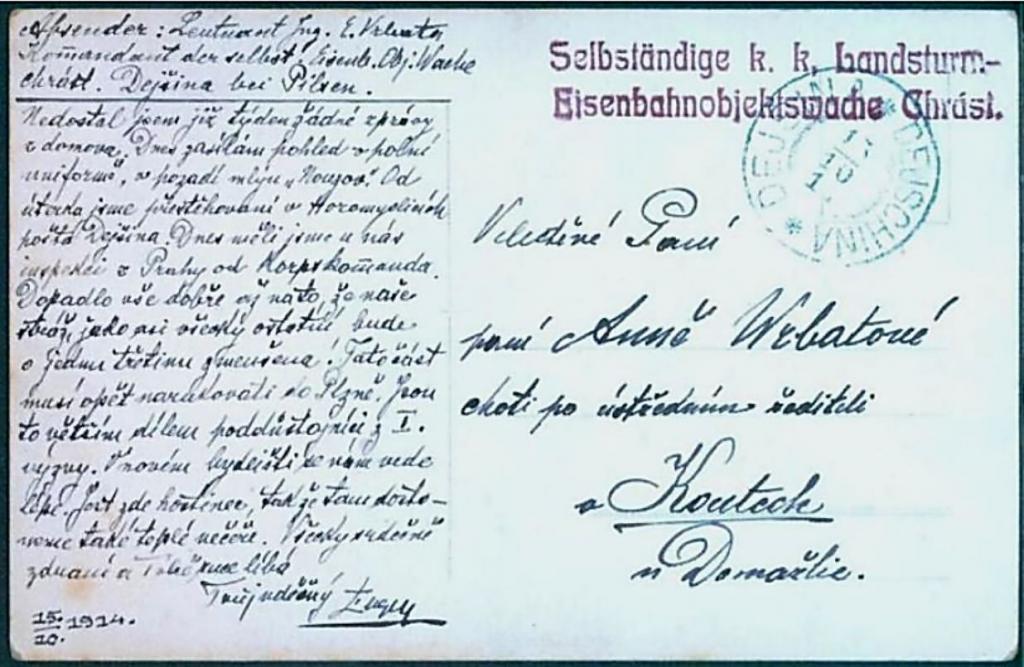 Absender: Leutnant Ing. E. Vrbata
Komandant der selbst. Eisenb. Obj. Wache
Chrást. Dejšina bei Pilsen.
Nedostal jsem již týden žádné zprávy
z domova. Dnes zasílám pohled v polní
uniformě, v pozadí mlýn „Nouzov“. Od
úterka jsme přestěhovaní v Horomyslicích
pošta Dejšina. Dnes měli jsme u nás
inspekci z Prahy od Korpskomanda.
Dopadlo vše dobře až na to, že naše
stráž, jako asi všecky ostatní bude
o jednu třetinu zmenšena! Tato část
musí opět narukovati do Plzně. Jsou
to větším dílem poddůstojníci z I.
výzvy. V novém bydlišti se nám vede
lépe. Jest zde hostinec, takže tam dosta-
neme také teplé večeře. Všecky srdečně
zdraví a Tobě ruce líbá
Tvůj vděčný Eugen
15./10. 1914.
Selbständige k. k. Landsturm-
Eisenbahnobjektswache Chrást.
DEJŠINA * DEISCHINA *
Velectěné Paní
paní Anně Wrbatové
choti po ústředním řediteli
v Koutech
u Domažlic.